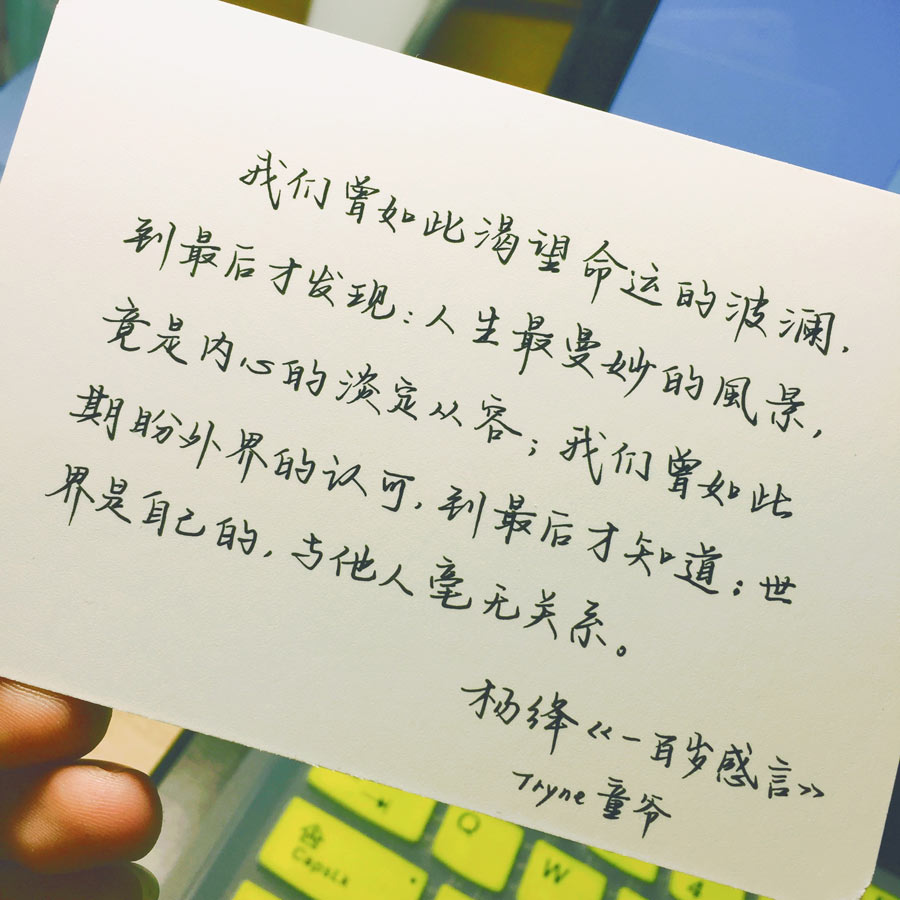 我们曾如此渴望命运的波澜,
到最后才发现:人生最曼妙的風景,
竟是内心的淡定从容;我们曾如此
期盼外界的认可,到最后才知道:世
界是自己的,与他人毫无关系。
杨绛《一百岁感言》
Tryne 童爷
Q
CapsLk
W
4